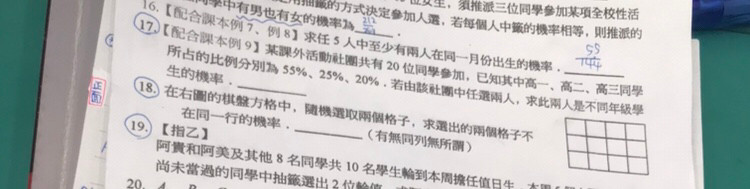 用抽籤的方式決定參加人選，若每個人中籤的機率相等，則推派的
位女生，須推派三位同學參加某項全校性活
同學中有男也有女的機率為
16.【配合課本例 7、例 8】求任 5 人中至少有兩人在同一月份出生的機率．
55/144
17.【配合課本例 9】某課外活動社團共有 20 位同學參加，已知其中高一、高二、高三同學
所占的比例分別為 55%、25%、20%．若由該社團中任選兩人，求此兩人是不同年級學
生的機率．
18. 在右圖的棋盤方格中，隨機選取兩個格子，求選出的兩個格子不
在同一行的機率．（有無同列無所謂）
19.【指乙】
阿貴和阿美及其他 8 名同學共 10 名學生輪到本周擔任值日生
尚未當過的同學中抽籤選出 2 位輪值
20.